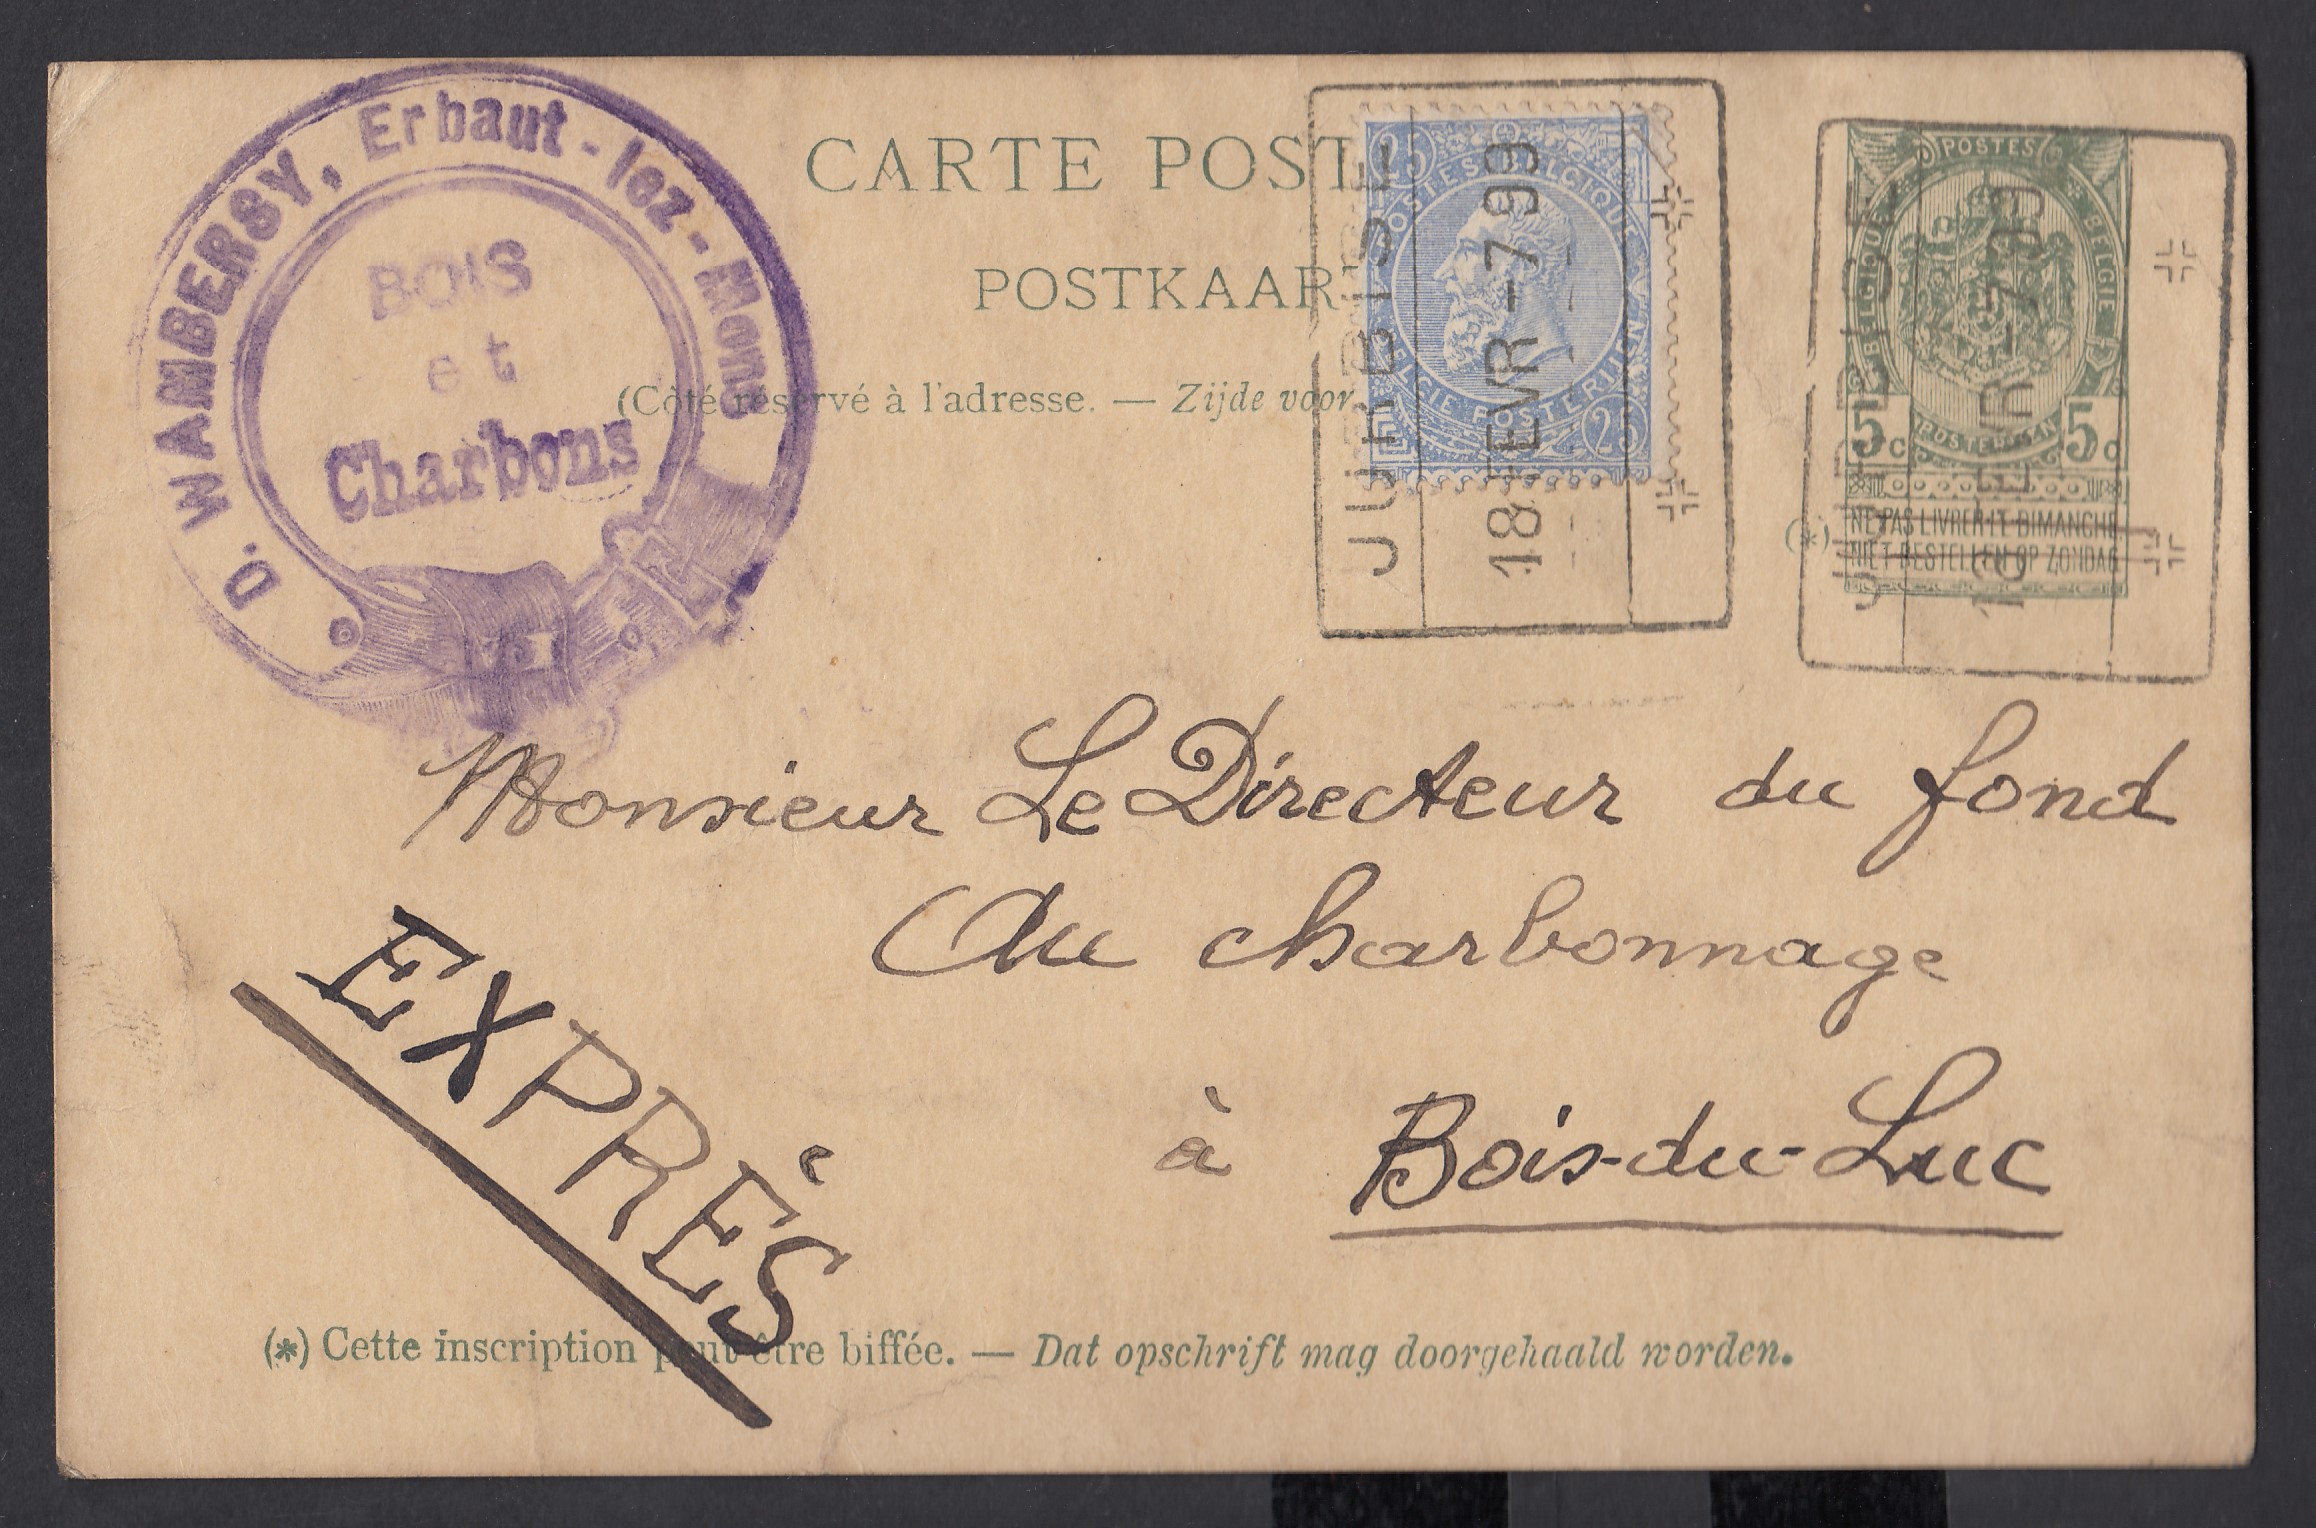 D. WAMBERSY, Erbaut-lez-Mons
BOIS
et
Charbons
CARTE POST
POSTKAAR
(Côté réservé à l'adresse. — Zijde voor
25
POSTES BELGIQUE
BELGIE POSTERIJEN
25
JURBISE
18 FEVR -7 99
POSTES
BELGIQUE
BELGIE
5c 5c
POSTERIJEN
(*) NE PAS LIVRER LE DIMANCHE
NIET BESTELLEN OP ZONDAG
JURBISE
18 FEVR -7 99
Monsieur Le Directeur du fond
Au charbonnage
à Bois-du-Luc
EXPRÈS
(*) Cette inscription peut être biffée. — Dat opschrift mag doorgehaald worden.